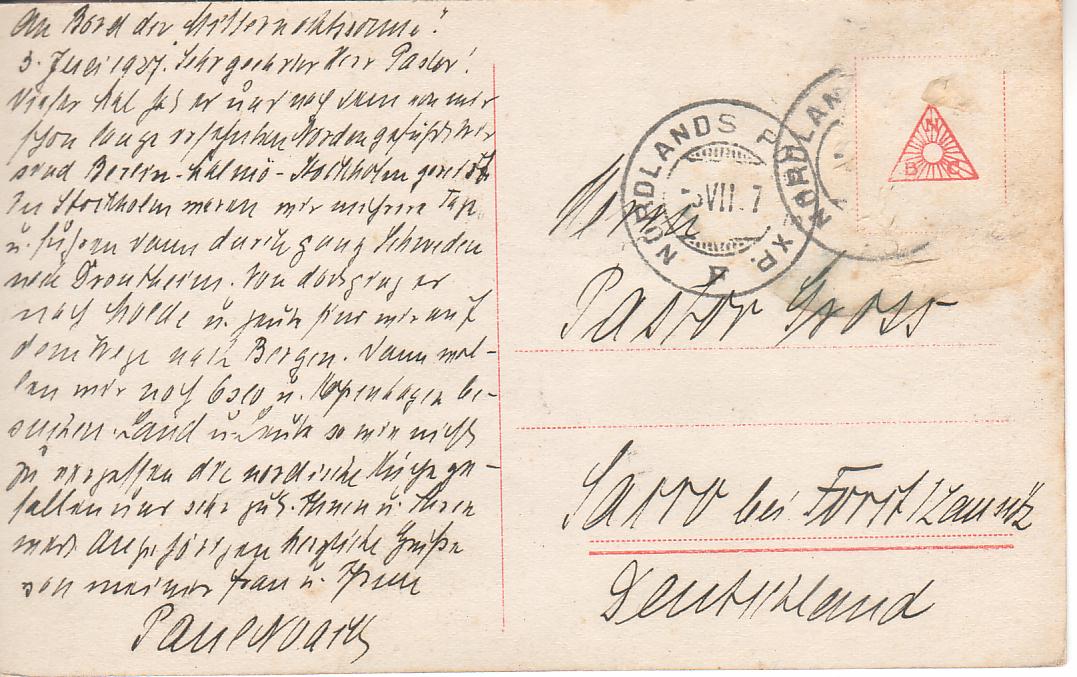 An Bord der "Mitternachtssonne".
3. Juli 1927. Sehr geehrter Herr Pastor!
Dieses Mal hat er uns nach dem von mir
schon lange ersehnten Norden geführt. Wir
sind Berlin - Malmö - Stockholm gereist.
In Stockholm waren wir mehrere Tage
u. fuhren dann durch ganz Schweden
nach Drontheim. Von dort ging es
nach Molde u. heute sind wir auf
dem Wege nach Bergen. Dann wol-
len wir noch Oslo u. Kopenhagen be-
suchen. Land u. Leute so wie nicht
zu vergessen die nordische Küche ge-
fallen uns sehr gut. Ihnen u. Ihren
werten Angehörigen herzliche Grüße
von meiner Frau u. Ihrem
Paul Noack
NORDLANDS P. XP. A
VII. 7
NORDLAN
N
B C
Herrn
Pastor Gross
Sacro bei Forst/Lausitz
Deutschland